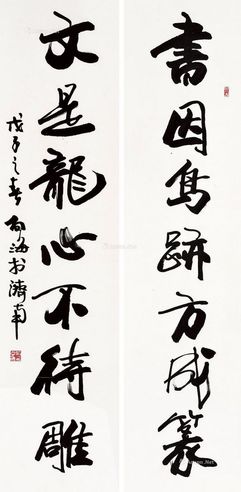 書因鳥跡方成篆
文是龍心不待雕
戊子之春
於濟南